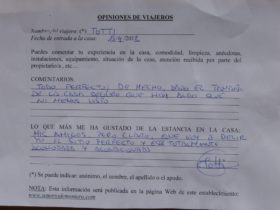 OPINIONES DE VIAJEROS
Nombre del viajero: (*) TOTTI
Fecha de entrada a la casa:
Puedes comentar tu experiencia en la casa, comodidad, limpieza, anécdotas,
instalaciones, equipamiento, situación de la casa, atención recibida por parte del
propietario/a, etc...
COMENTARIOS:
TODO PERFECTO, DE HECHO, DADO EL TAMAÑO
DE LA CASA SEGURO QUE HAY ALGO QUE
NI HEMOS VISTO
LO QUE MÁS ME HA GUSTADO DE LA ESTANCIA EN LA CASA:
MIS AMIGOS, PERO CLARO, QUE VOY A DECIR
YO EL SITIO PERFECTO Y ESE TOTALMENTE
Totti
(*) Se puede indicar: anónimo, el nombre, el apellido o el apodo.
NOTA: Esta información será publicada en la página Web de este establecimiento: